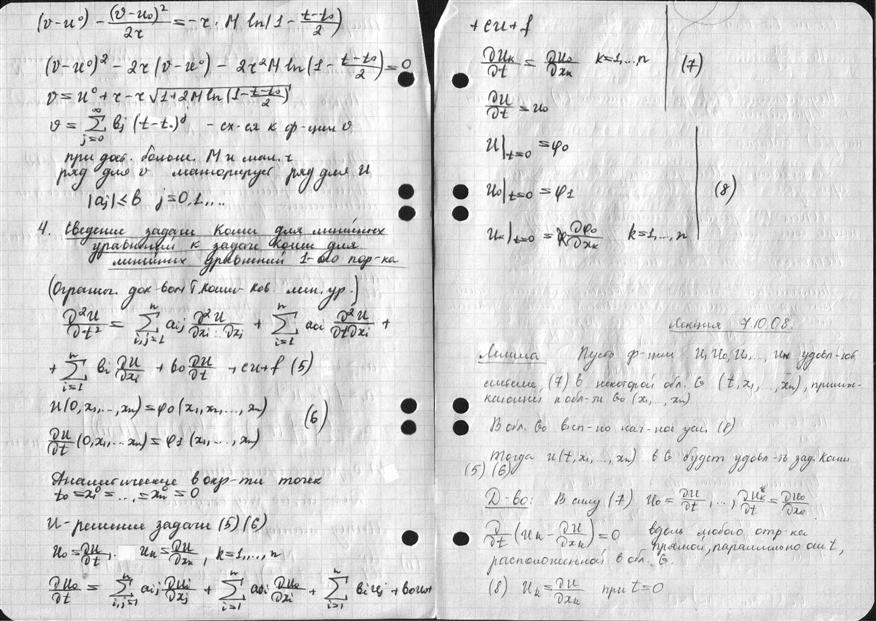 (v-u⁰) - (v-u₀)²/2r = -r·M ln(1 - (t-t₀)/2)
(v-u⁰)² - 2r(v-u⁰) - 2r²M ln(1 - (t-t₀)/2) = 0
v = u⁰ + r - r√(1+2M ln(1-(t-t₀)/2))
v = ∑_{j=0}^{∞} bj (t-t₀)^j - сх-ся к ф-ции v
при дост. больш. M и мал. r
ряд для v мажорирует ряд для u
|aj| ≤ b j=0,1,...
4. Сведение задачи Коши для линейных
уравнений к задаче Коши для
линейных уравнений 1-ого пор-ка
(Огранич. док-вом т. Коши-Ков лин. ур.)
∂²u/∂t² = ∑_{i,j=1}^{n} aij ∂²u/∂xi∂xj + ∑_{i=1}^{n} aoi ∂²u/∂t∂xi +
+ ∑_{i=1}^{n} bi ∂u/∂xi + b0 ∂u/∂t + cu + f (5)
u(0,x₁,...,xn) = φ0(x₁,x₂,...,xn)
(6)
∂u/∂t (0,x₁,...xn) = φ1(x₁,...,xn)
Аналитические в окр-ти точек
t₀ = x₁⁰ = ... = xn⁰ = 0
u - решение задачи (5)(6)
u0 = ∂u/∂t, uk = ∂u/∂xk, k=1,...,n
∂u0/∂t = ∑_{i,j=1}^{n} aij ∂ui/∂xj + ∑_{i=1}^{n} aoi ∂u0/∂xi + ∑_{i=1}^{n} bi ui + b0u0+
+ cu + f
∂uk/∂t = ∂u0/∂xk k=1,...,n (7)
∂u/∂t = u0
u|t=0 = φ0
u0|t=0 = φ1 (8)
uk|t=0 = ∂φ0/∂xk k=1,...,n
Лекция 7.10.08.
Лемма Пусть ф-ции u, u0, u1, ..., un удовл-ют
системе (7) в некоторой обл. G (t,x₁,...,xn), примы-
кающей к обл-ти G0 (x₁,...,xn)
В обл. G0 вып-но нач-ное усл. (8)
Тогда u(t,x₁,...,xn) в G будет удовл-ть зад. Коши
(5)(6)
Д-во: В силу (7) u0 = ∂u/∂t, ..., ∂uk/∂t = ∂u0/∂xk
∂/∂t (uk - ∂u/∂xk) = 0 вдоль любого отр-ка
прямой, параллельно оси t,
расположенной в обл. G.
(8) uk = ∂u/∂xk при t=0